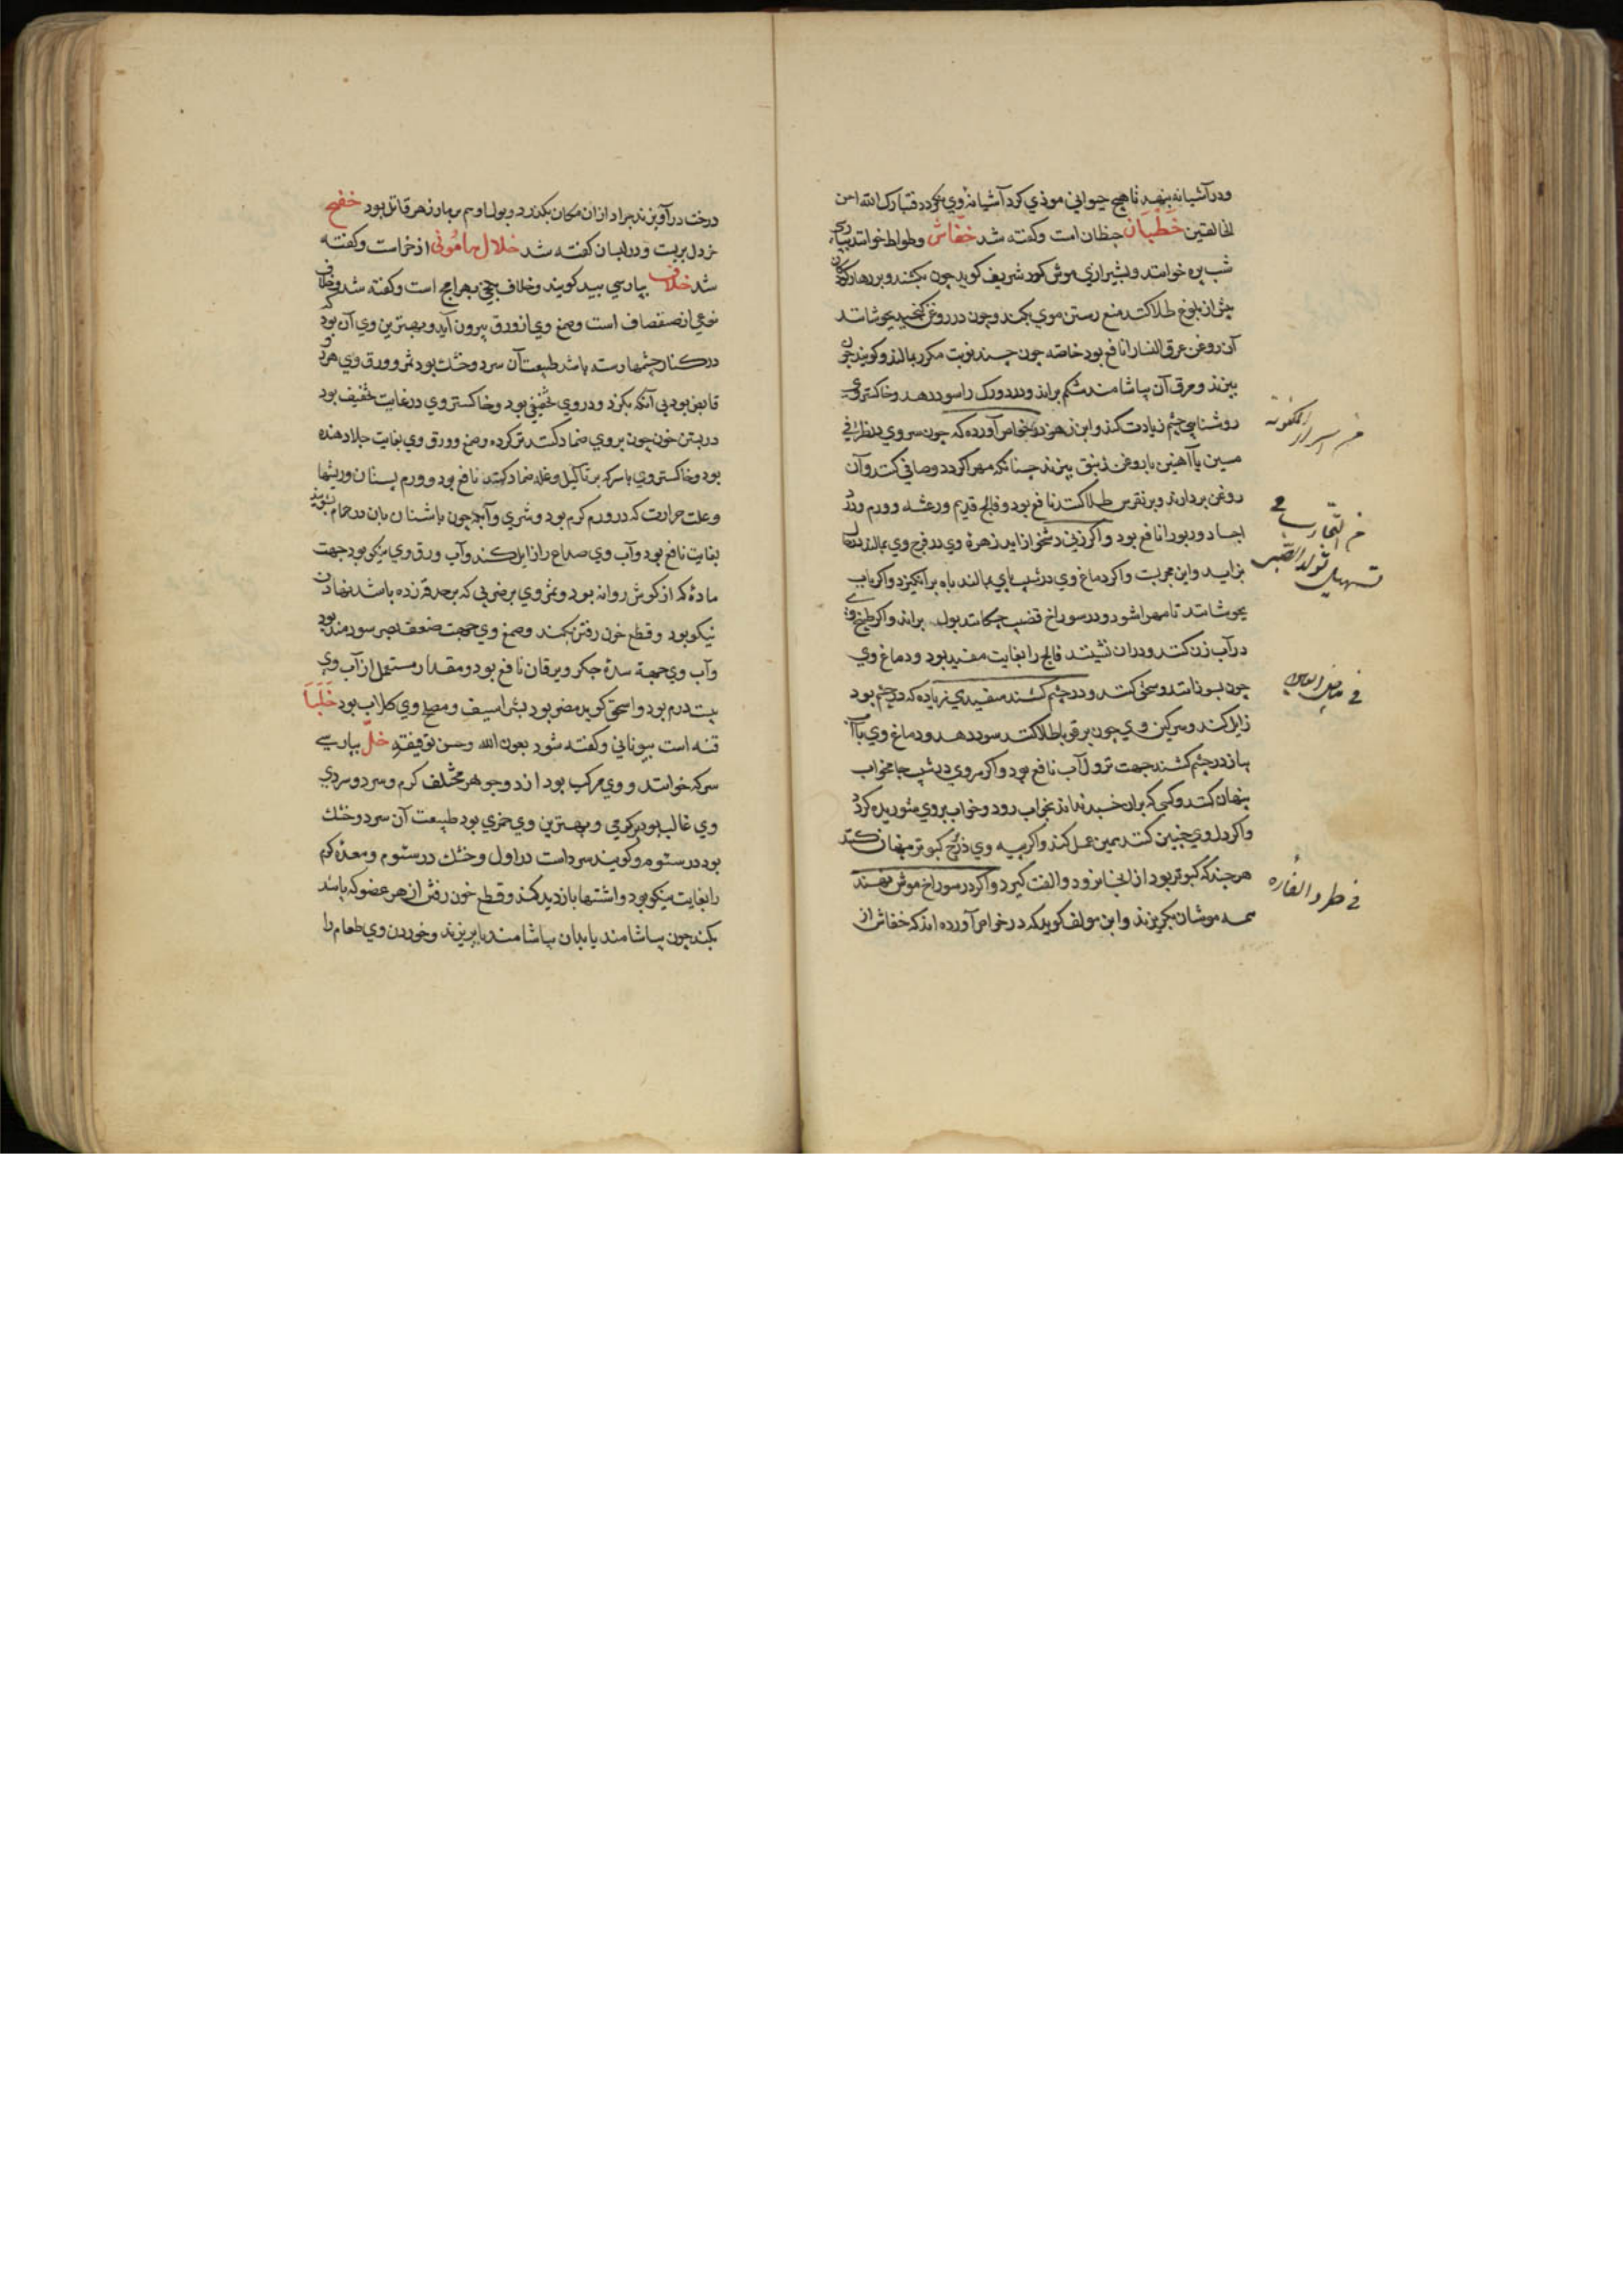 ودر آشیانه بنهد تا هیچ حیوانی موذی کرد آشیانهٔ وی نکردد فتبارک الله احسن
الخالقین خطبان حنظان است وکفته شد خفاش وطواط خوانند بپارسی
شب پره خوانند وبشیرازی موش کور شریف کوید چون بکشند وبر زهار کودکان
پیش از بلوغ طلا کنند منع رستن موی بکند وچون در روغن کنجد بجوشانند
آن روغن عرق النسا را نافع بود خاصه چون چند نوبت مکرر بمالند وکویند چون
بپزند ومرق آن بیاشامند شکم براند ودرد ورک را سود دهد وخاکستر وی
روشنایی چشم زیادت کند وابن زهر در خواص آورده که چون سر وی در ظرفی
مسین یا آهنین با روغن زنبق بپزند چنانکه مهرا کردد وصافی کنند وآن
روغن بردارند وبر نقرس طلا کنند نافع بود وفالج قدیم ورعشه وورم ودرد
اجساد وربو را نافع بود واکر زنی دشخوار زاید زهرهٔ وی در فرج وی بمالند در حال
بزاید واین مجربست واکر دماغ وی در شیب پای بمالند باه برانکیزد واکر باب
بجوشانند تا مهرا شود ودر سوراخ قضیب چکانند بول براند واکر طبیخ وی
در آب زن کنند ودران نشینند فالج را بغایت مفید بود ودماغ وی
چون بسوزانند وسحق کنند ودر چشم کشند سفیدی زیاده که در چشم بود
زایل کند وسرکین وی چون بر قوبا طلا کنند سود دهد ودماغ وی با آب
پیاز در چشم کشند جهت نزول آب نافع بود واکر سر وی در شیب جامه خواب
پنهان کنند وکسی که بران خسبد نداند بخواب رود وخواب بر وی شوریده کردد
واکر دل وی چنین کنند همین عمل کند واکر پیه وی در برج کبوتر پنهان کنند
هر چند که کبوتر بود از انجا نرود والفت کیرد واکر در سوراخ موش نهند
همه موشان بکریزند وابن مولف کوید که در خواص آورده اند که خفاش از
من اسرار المکنونه
من التجارب فی
تسهیل تولد الصبی
فی بیاض العین
فی طرد الفاره
درخت در آویزند جراد از ان مکان بکذرد وبول او سم بود زهر قاتل بود خفج
خردل بریست ودر لبسان کفته شد خلال مامونی اذخر است وکفته
شد خلاف بپارسی بید کویند وخلاف بلخی بهرامج است وکفته شد وخلاف
نوعی از صفصاف است وصمغ وی از ورق بیرون آید وبهترین وی آن بود که
در کنار چشمها رسته باشد طبیعت آن سرد وخشک بود ثمر وورق وی هر دو
قابض بود بی آنکه بکزد ودر وی تجفیفی بود وخاکستر وی در غایت تجفیف بود
در بستن خون چون بر وی ضماد کنند تر کرده وصمغ وورق وی بغایت جلا دهنده
بود وخاکستر وی با سرکه بر ثآلیل ونمله ضماد کنند نافع بود وورم پستان وریشها
وعلت حرارت که در ورم کرم بود وشری وآبله چون باشنان بان در حمام بشویند
بغایت نافع بود وآب وی صداع را زایل کند وآب ورق وی نیکو بود جهت
مادهٔ که از کوش روانه بود وثمر وی بر ضربی که بر حدقه زده باشد نهادن
نیکو بود وقطع خون رفتن بکند وصمغ وی جهت ضعف بصر سودمند بود
وآب وی جهة سدهٔ جکر ویرقان نافع بود ومقدار مستعمل از آب وی
بیست درم بود واسحق کوید مضر بود بشراسیف ومصلح وی کلاب بود خلبا
قنه است بیونانی وکفته شود بعون الله وحسن توفیقه خل بپارسی
سرکه خوانند ووی مرکب بود از دو جوهر مختلف کرم وسرد وسردی
وی غالب بود بر کرمی وبهترین وی خمری بود طبیعت آن سرد وخشک
بود در سئوم وکویند سرد است در اول وخشک در سئوم ومعدهٔ کرم
را بغایت نیکو بود واشتها بازدید کند وقطع خون رفتن از هر عضو که باشد
بکند چون بیاشامند یا بدان بیاشامند یا بریزند وخوردن وی طعام را